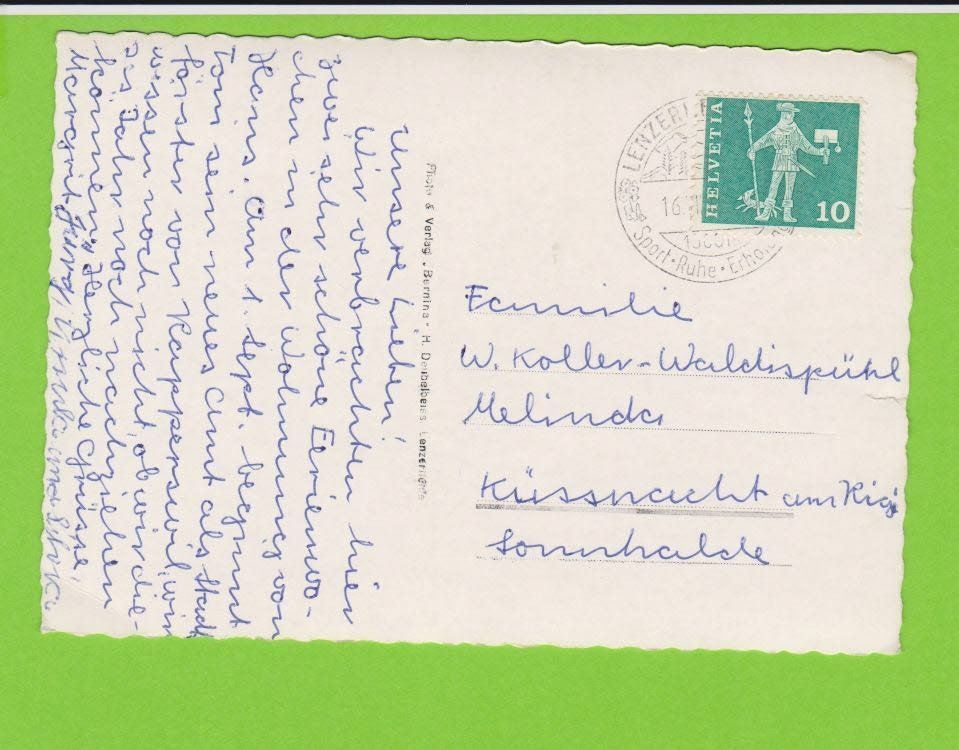 Unsere Lieben!
Wir verbrachten hier
zwei sehr schöne Ferienwo-
chen in der Wohnung von
Hains. Am 1. Sept. beginnt
Toni sein neues Amt als Stadt
förster von Rapperswil, wir
wissen noch nicht, ob wir die-
ses Jahr noch nachziehen
können. Herzliche Grüsse,
Margrit
Photo & Verlag . Bernina - H. Lenzerheide
LENZER
16.
Sport · Ruhe · Erholung
HELVETIA
10
Familie
W. Koller-Waldispühl
Melinda
Küssnacht am Rigi
Sonnhalde